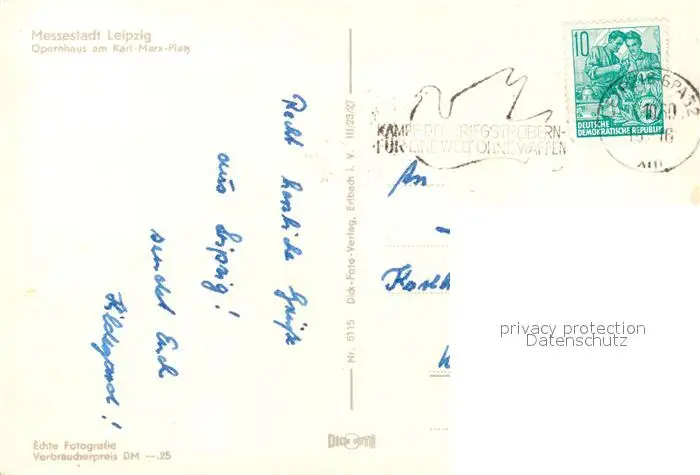 Messestadt Leipzig
Opernhaus am Karl-Marx-Platz
Recht herzliche Grüße
aus Leipzig!
sendet Euch
Hildegard!
Echte Fotografie
Verbraucherpreis DM —.25
Nr. 5115 Dick-Foto-Verlag, Erlbach i. V. III/23/27
DICK FOTO
KAMPF DEN KRIEGSTREIBERN-
-FÜR EINE WELT OHNE WAFFEN
10
DEUTSCHE
DEMOKRATISCHE REPUBLIK
An
privacy protection
Datenschutz